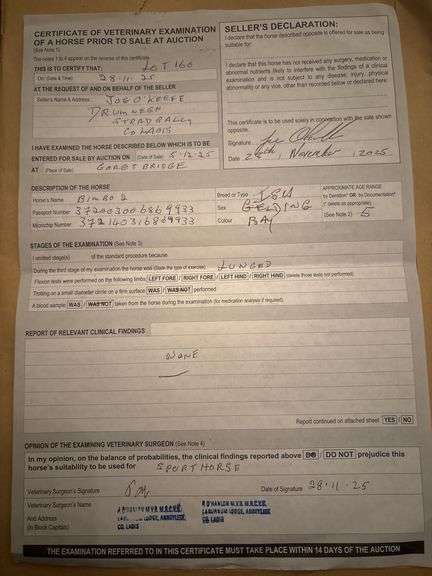 CERTIFICATE OF VETERINARY EXAMINATION
OF A HORSE PRIOR TO SALE AT AUCTION
(See Note 1)
The notes 1 to 4 appear on the reverse of this certificate
THIS IS TO CERTIFY THAT: LOT 160
On: (Date & Time) 28-11-25
AT THE REQUEST OF AND ON BEHALF OF THE SELLER
Seller's Name & Address: JOE O'KEEFE
STRADBALLY
CO LAOIS
I HAVE EXAMINED THE HORSE DESCRIBED BELOW WHICH IS TO BE
ENTERED FOR SALE BY AUCTION ON (Date of Sale) 5-12-25
AT (Place of Sale) GORESBRIDGE
SELLER'S DECLARATION:
I declare that the horse described opposite is offered for sale as being
suitable for:
I declare that this horse has not received any surgery, medication or
abnormal nutrients likely to interfere with the findings of a clinical
examination and is not subject to any disease, injury, physical
abnormality or any vice, other than recorded below or declared here:
This certificate is to be used solely in connection with the sale shown
opposite.
Signature
Date 28th, November, 2025
DESCRIPTION OF THE HORSE
Horse's Name BIMBO 2
Passport Number
Microchip Number
Breed or Type ISH
Sex GELDING
Colour BAY
APPROXIMATE AGE RANGE
by Dentition* OR by Documentation*
(* delete as appropriate)
(See Note 2) 5
STAGES OF THE EXAMINATION (See Note 3)
I omitted stage(s) of the standard procedure because
During the third stage of my examination the horse was (State the type of exercise) LUNGED
Flexion tests were performed on the following limbs LEFT FORE / RIGHT FORE / LEFT HIND / RIGHT HIND (delete those tests not performed)
Trotting on a small diameter circle on a firm surface WAS / WAS NOT performed
A blood sample WAS / WAS NOT taken from the horse during the examination (for medication analysis if required)
REPORT OF RELEVANT CLINICAL FINDINGS
NONE
Report continued on attached sheet YES / NO
OPINION OF THE EXAMINING VETERINARY SURGEON (See Note 4)
In my opinion, on the balance of probabilities, the clinical findings reported above DO / DO NOT prejudice this
horse's suitability to be used for SPORT HORSE
Veterinary Surgeon's Signature
Date of Signature 28-11-25
Veterinary Surgeon's Name
And Address
(in Block Capitals)
M.V.B. M.R.C.V.S.
LODGE, ABBEYLEIX,
CO. LAOIS
R O'HANLON M.V.B. M.R.C.V.S.
LODGE, ABBEYLEIX,
CO. LAOIS
THE EXAMINATION REFERRED TO IN THIS CERTIFICATE MUST TAKE PLACE WITHIN 14 DAYS OF THE AUCTION